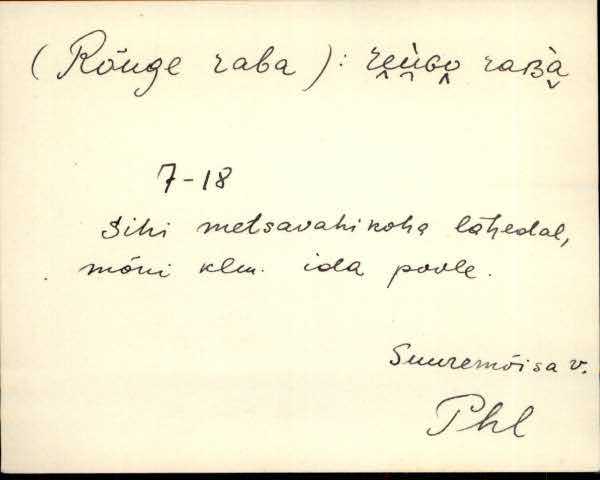 (Rõuge raba): re̬u̬̇ɢo̬ raʙà̬
7-18
Sihi metsavahikoha lähedal,
mõni klm. ida poole.
Suuremõisa v.
Phl